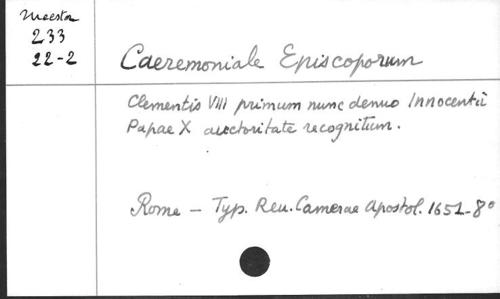 Meester
233
22-2
Caeremoniale Episcoporum
Clementis VIII primum nunc denuo Innocentii
Papae X auctoritate recognitum.
Rome - Typ. Reu. Camerae Apostol. 1651_8°